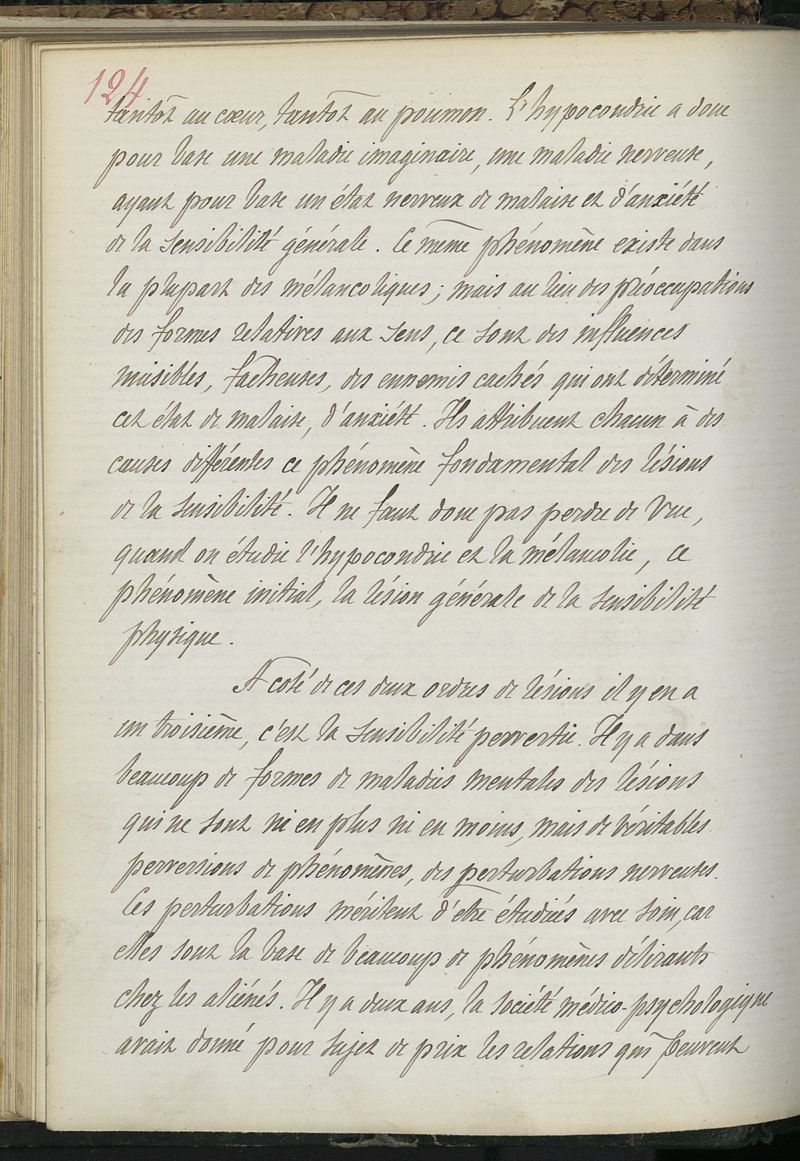 124
tantôt au cœur, tantôt au poumon. L'hypocondrie a donc
pour base une maladie imaginaire, une maladie nerveuse,
ayant pour base un état nerveux de malaise et d'anxiété
de la sensibilité générale. Ce même phénomène existe dans
la plupart des mélancoliques; mais au lieu des préoccupations
des formes relatives aux sens, ce sont des influences
nuisibles, facheuses, des ennemis cachés qui ont déterminé
cet état de malaise, d'anxiété. Ils attribuent chacun à des
causes différentes ce phénomène fondamental des lésions
de la sensibilité. Il ne faut donc pas perdre de vue,
quand on étudie l'hypocondrie et la mélancolie, ce
phénomène initial, la lésion générale de la sensibilité
physique.
A coté de ces deux ordres de lésions il y en a
un troisième, c'est la sensibilité pervertie. Il y a dans
beaucoup de formes de maladies mentales des lésions
qui ne sont ni en plus ni en moins, mais de véritables
perversions de phénomènes, des perturbations nerveuses.
Ces perturbations méritent d'etre étudiées avec soin, car
elles sont la base de beaucoup de phénomènes délirants
chez les aliénés. Il y a deux ans, la société médico-psychologique
avait donné pour sujet de prix les relations qui peuvent